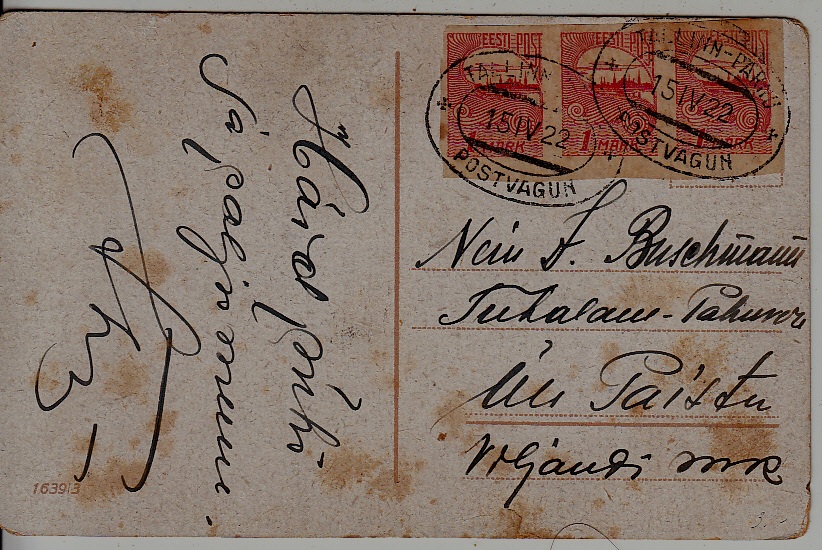 EESTI-POST EESTI-POST EESTI-POST
1 MARK 1 MARK 1 MARK
TALLINN
15 IV 22
POSTVAGUN
TALLINN-PÄRNU
15 IV 22
POSTVAGUN
Häid pühi
Sa palju
Nein F. Buschmann
Tuhalaane-
Üle Paistu
Viljandi mmk
163913
3.-